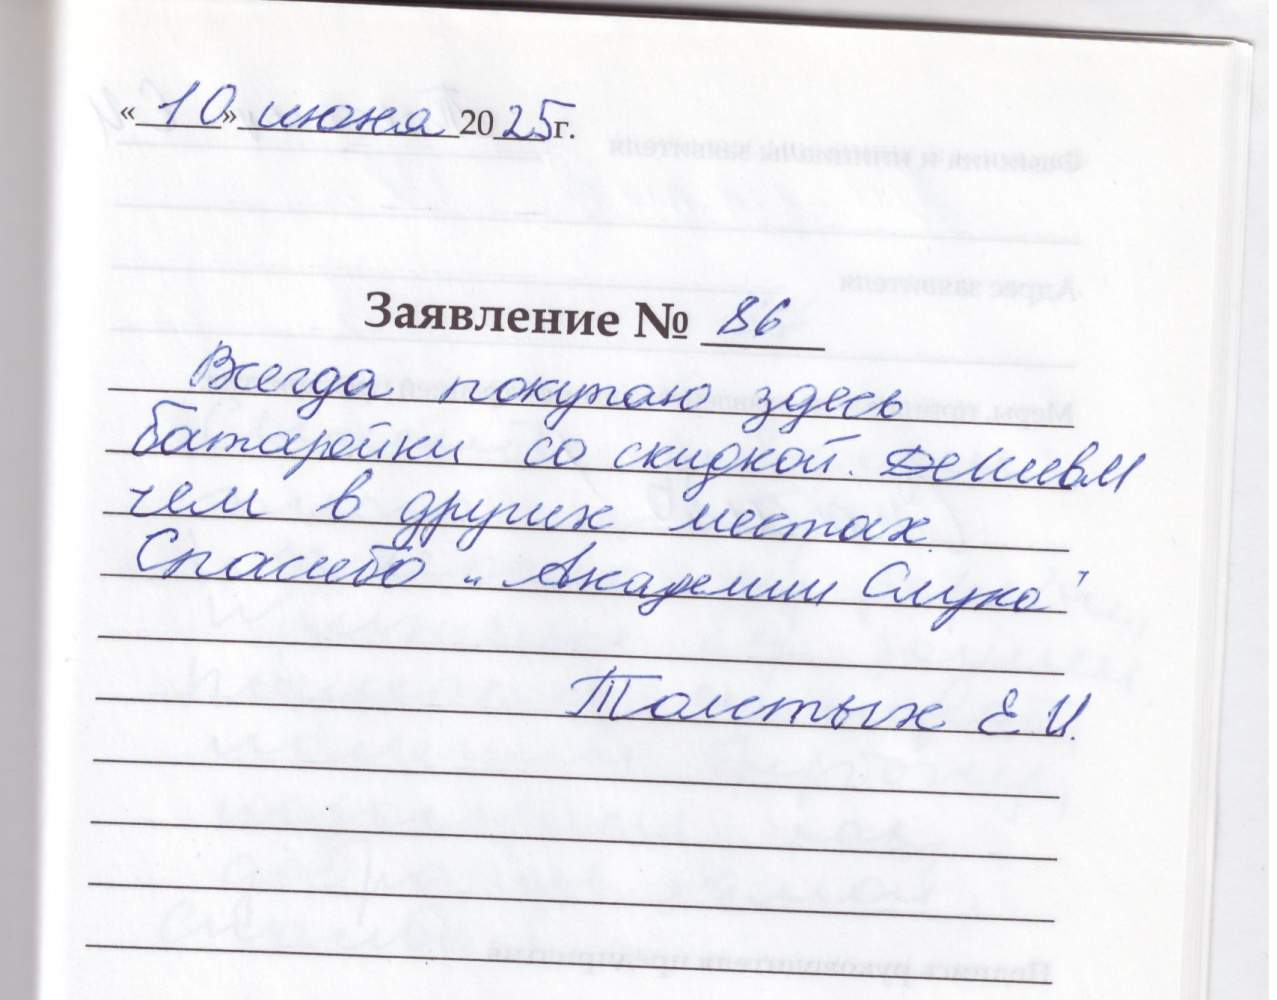 «10» июня 2025г.
Заявление № 86
Всегда покупаю здесь
батарейки со скидкой. Дешевле
чем в других местах.
Спасибо „Академии Слуха"
Толстых Е.И.